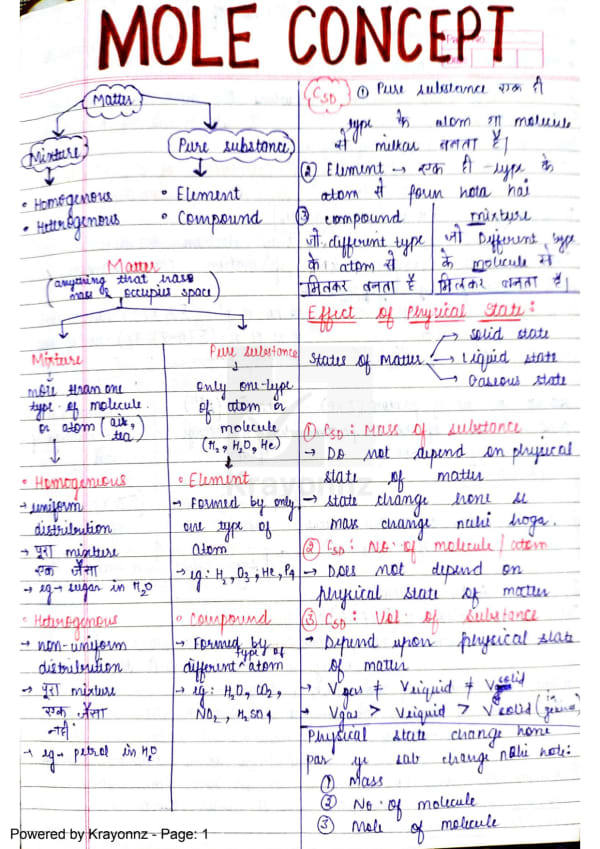 MOLE CONCEPT
Matter
Mixture
Pure substance
• Homogenous
• Heterogenous
• Element
• Compound
Matter
(anything that has
mass & occupies space)
Mixture
more than one
type of molecule
or atom (air, tea)
• Homogenious
→ uniform
distribution
→ पूरा mixture
एक जैसा
→ eg → sugar in H2O
• Heterogenous
→ non-uniform
distribution
→ पूरा mixture
एक जैसा
नहीं
→ eg → petrol in H2O
Pure substance
only one-type
of atom or
molecule
(H2, H2O, He)
• Element
→ Formed by only
one type of
atom
→ eg: H2, O3, He, P4
• Compound
→ Formed by
different types of atom
→ eg: H2O, CO2,
NO2, H2SO4
CSD ① Pure substance एक ही
type के atom या molecule
से milkar बनता है।
② Element → एक ही type के
atom से form hota hai
③ compound
जो different type
के atom से
मिलकर बनता है
mixture
जो Different type
के molecule से
मिलकर बनता है।
Effect of Physical State:
States of Matter
Solid state
Liquid state
Gaseous state
① CSD: Mass of substance
→ Do not depend on physical
state of matter
→ state change hone se
mass change nahi hoga.
② CSD: No. of molecule / atom
→ Does not depend on
physical state of matter
③ CSD: Vol. of substance
→ Depend upon physical state
of matter
→ Vgas ≠ Vliquid ≠ Vsolid
→ Vgas > Vliquid > Vsolid (in general)
Physical state change hone
par ye sab change nahi hote:
① Mass
② No. of molecule
③ Mole of molecule
Krayonnz
Powered by Krayonnz - Page: 1